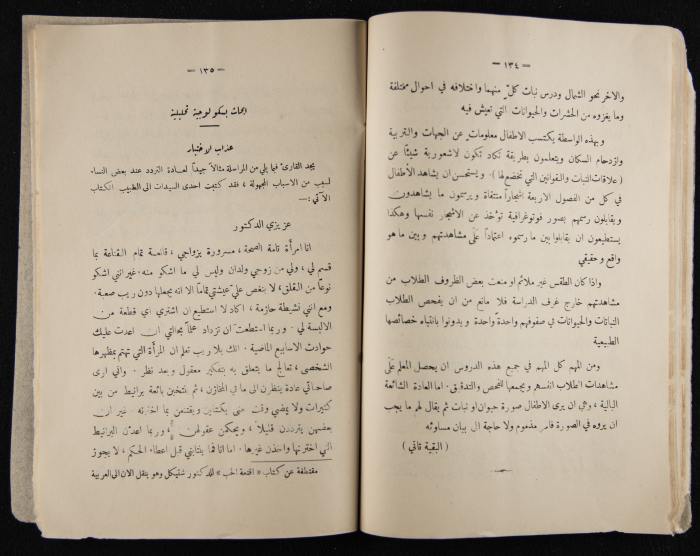 — ١٣٤ —
والاخر نحو الشمال ودرس نبات كلّ منهما واختلافه في احوال مختلفة
وما يغزوه من الحشرات والحيوانات التي تعيش فيه
وبهذه الواسطة يكتسب الاطفال معلومات عن الجهات والتربية
وازدحام السكان ويتعلمون بطريقة تكاد تكون لاشعورية شيئًا عن
( علاقات النبات والقوانين التي تخضع لها ) . ويستحسن ان يشاهد الأطفال
في كل من الفصول الاربعة اشجاراً منتقاة ويرسمون ما يشاهدون
ويقابلون رسمهم بصور فوتوغرافية تؤخذ عن الاشجار نفسها وهكذا
يستطيعون ان يقابلوا بين ما رسموه اعتماداً على مشاهدتهم وبين ما هو
واقع وحقيقي
واذا كان الطقس غير ملائم او منعت بعض الظروف الطلاب من
مشاهدتهم خارج غرف الدراسة فلا مانع من ان يفحص الطلاب
النباتات والحيوانات في صفوفهم واحدة واحدة ويدونوا بانتباه خصائصها
الطبيعية
ومن المهم كل المهم في جميع هذه الدروس ان يحصل المعلم على
مشاهدات الطلاب انفسهم ويجمعها للتمحص والتدقيق . اما العادة الشائعة
البالية ، وهي ان يرى الاطفال صورة حيوان او نبات ثم يقال لهم ما يجب
ان يروه في الصورة فامر مذموم ولا حاجة الى بيان مساوئه
( البقية تاتي )
— ١٣٥ —
ابحاث بسكولوجية تحليلية
عذاب الاختيار
يجد القارئ فيما يلي من المراسلة مثالاً جيداً لعادة التردد عند بعض النساء
لسبب من الاسباب المجهولة ، فقد كتبت احدى السيدات الى الطبيب الكتاب
الآتي :—
عزيزي الدكتور
انا امرأة تامة الصحة ، مسرورة بزواجي ، قانعة تمام القناعة بما
قسم لي ، ولي من زوجي ولدان وليس لي ما اشكو منه . غير انني اشكو
نوعاً من القلق ، لا ينغص عليّ عيشتي تماماً الا انه يجعلها دون ريب صعبة .
ومع انني نشيطة حازمة ، اكاد لا استطيع ان اشتري اي قطعة من
الالبسة لي . وربما استطعت ان تزداد علماً بحالتي ان اعدت عليك
حوادث الاسابيع الماضية . انك بلا ريب تعلم ان المرأة التي تهتم بمظهرها
الشخصي ، تعالج ما يتعلق به بتفكير معقول وبعد نظر . واني ارى
صاحباتي عادة ينظرن الى ما في المخازن ، ثم ينتخبن بائعة برانيط من بين
كثيرات ولا يمضي وقت حتى يكتفين ويقتنعن بما اخترنه . غير ان
بعضهن يترددن قليلاً ، ويحكمن عقولهن ، وربما اعدن البرانيط
التي اخترنها واخذن غيرها . اما انا فما ينتابني قبل اعطاء الحكم ، لا يجوز
مقتطفة عن كتاب « اقنعة الحب » للدكتور شتيكل وهو ينقل الان الى العربية